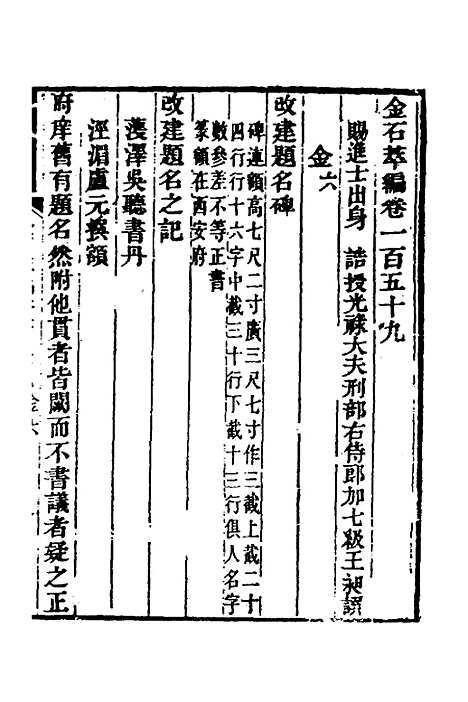 金石萃編卷一百五十九
賜進士出身 誥授光祿大夫刑部右侍郎加七級王昶譔
金六
改建題名碑
碑連額高七尺二寸廣三尺七寸作三截上截二十
四行行十六字中截三十行下截十三行俱人名字
數參差不等正書
篆額在西安府
改建題名之記
濩澤吳聽書丹
涇湄盧元㨾額
府庠舊有題名然附他貫者皆闕而不書議者疑之正